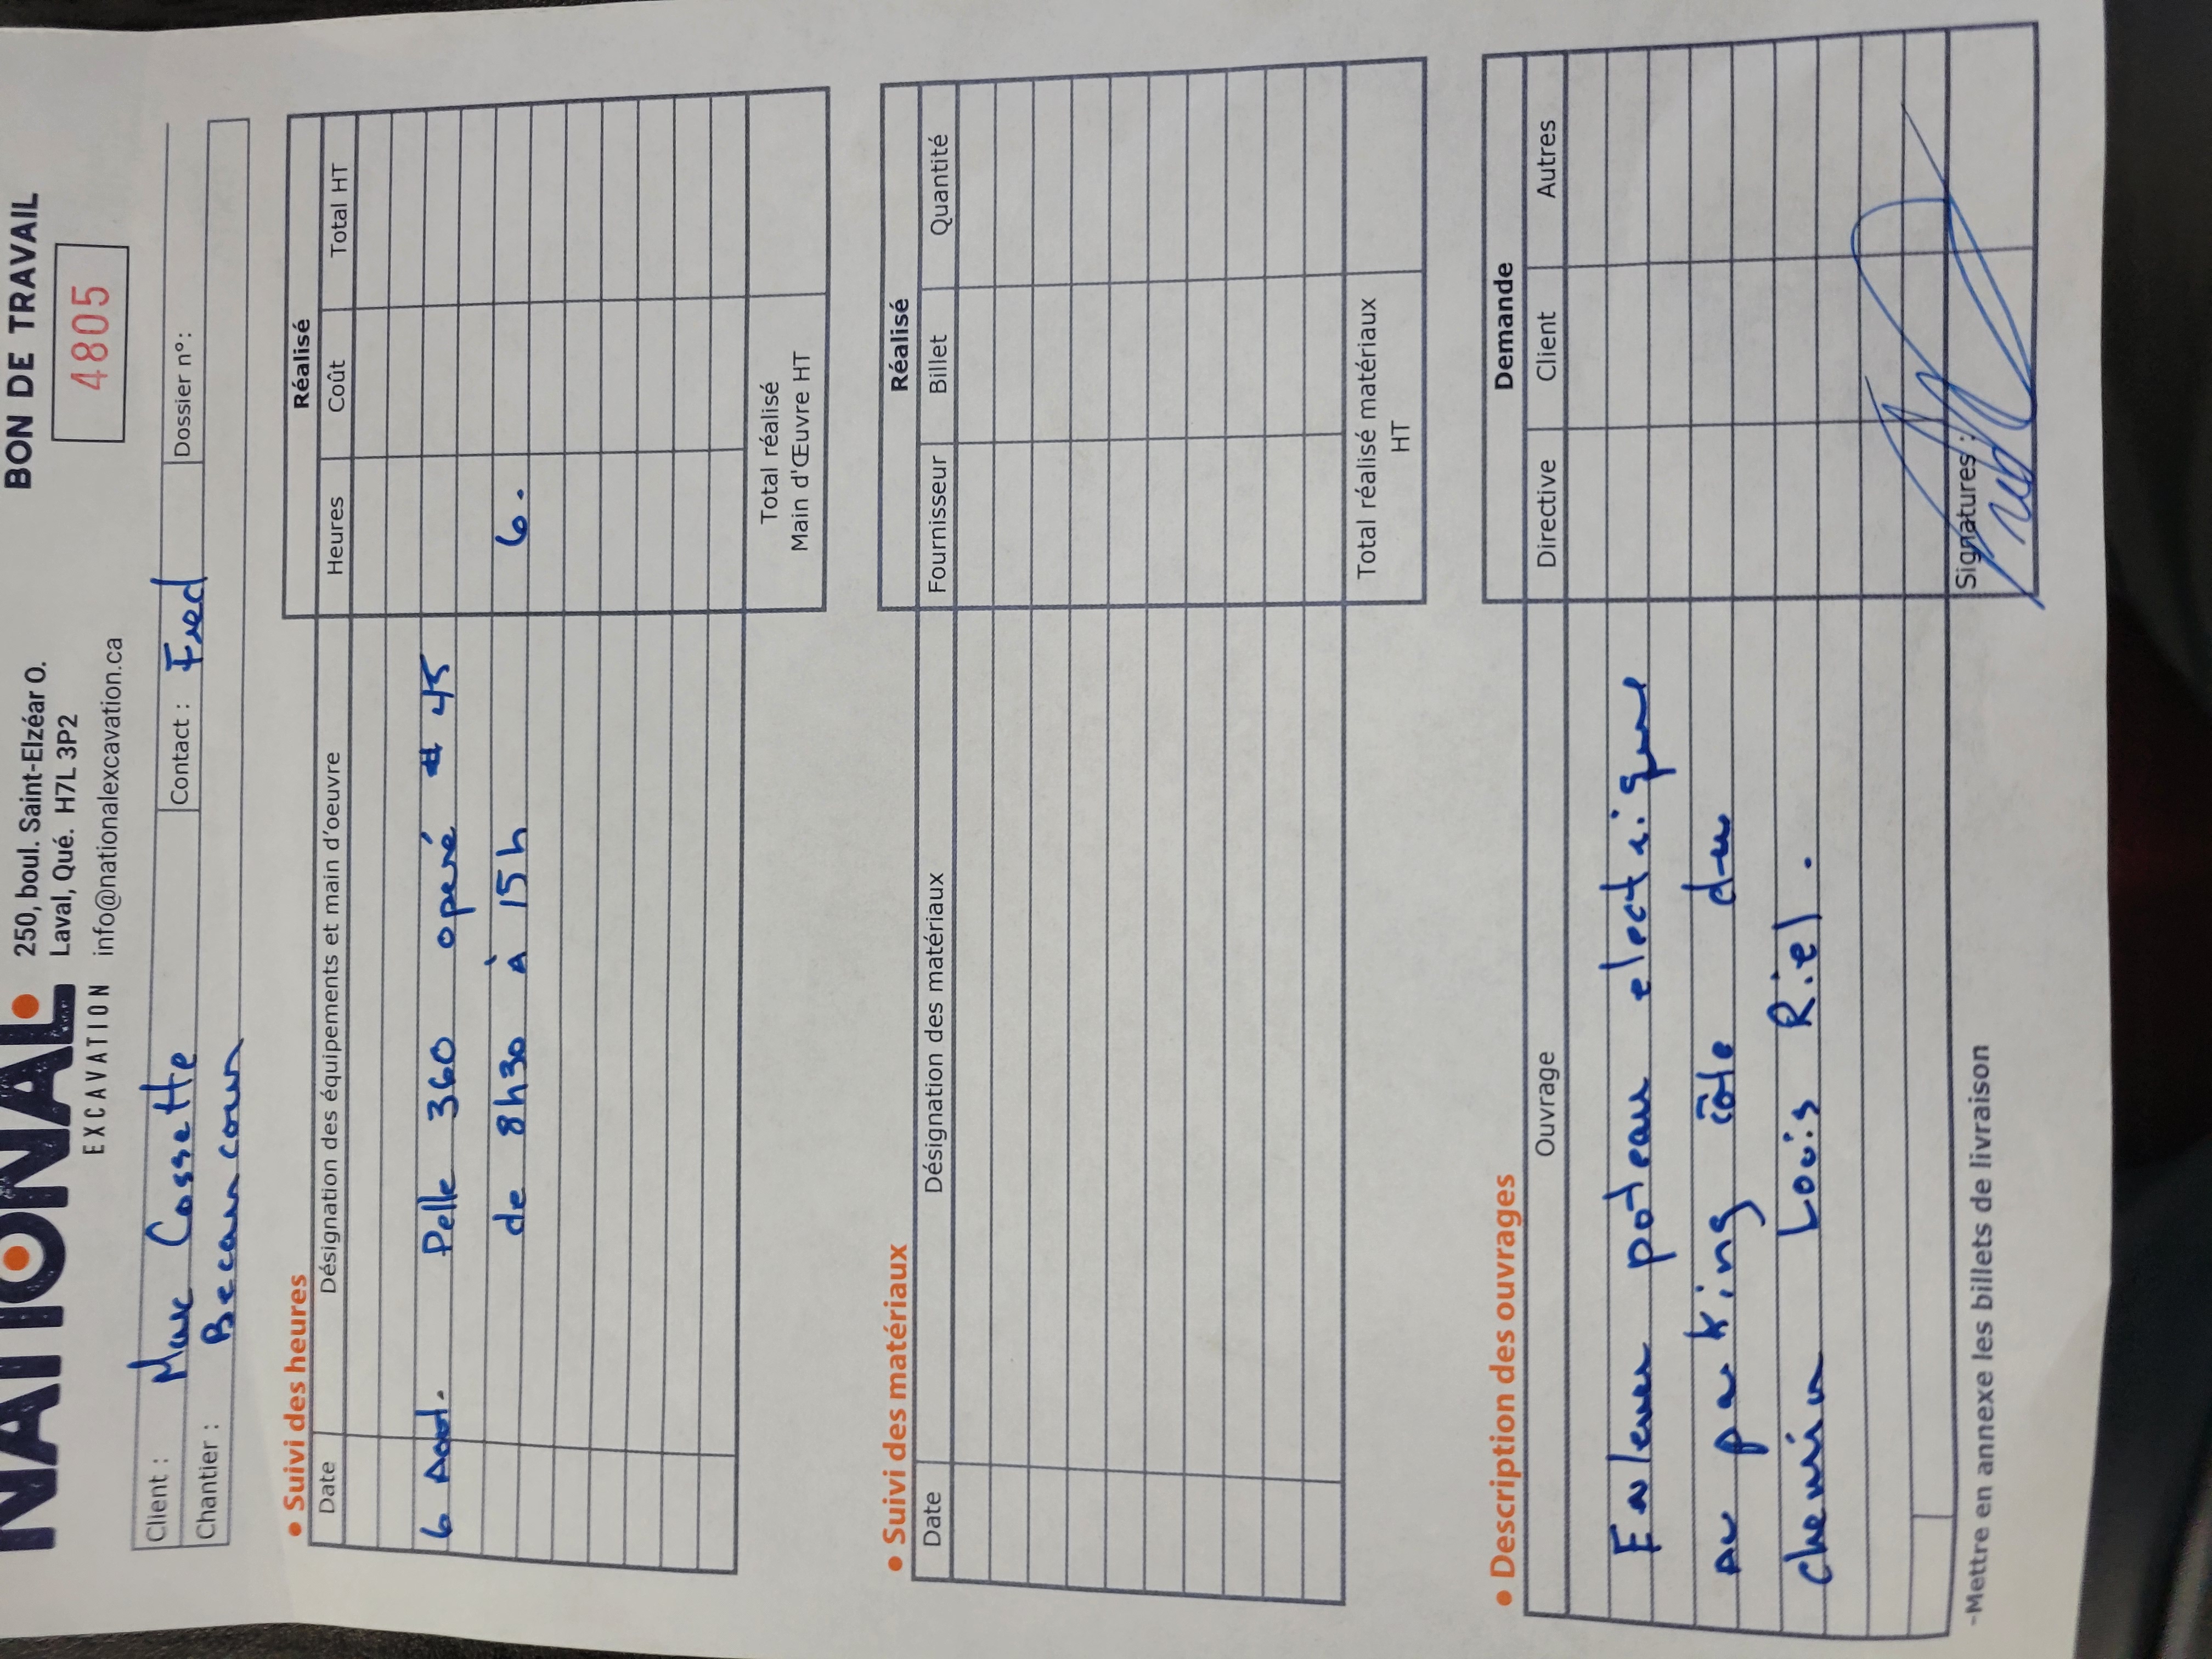 NATIONAL
EXCAVATION
250, boul. Saint-Elzéar O.
Laval, Qué. H7L 3P2
info@nationalexcavation.ca
BON DE TRAVAIL
4805
Client : Marc Cossette
Contact : Fred
Dossier n°:
Chantier : Becancour
• Suivi des heures
Réalisé
Date Désignation des équipements et main d'oeuvre Heures Coût Total HT
6 Aout. Pelle 360 operé # 45
de 8h30 À 15h 6.
Total réalisé
Main d'Œuvre HT
• Suivi des matériaux
Réalisé
Date Désignation des matériaux Fournisseur Billet Quantité
Total réalisé matériaux
HT
• Description des ouvrages
Demande
Ouvrage Directive Client Autres
Enlever poteau electrique
Au parking côte du
chemin Louis Riel.
-Mettre en annexe les billets de livraison
Signatures :
Fred